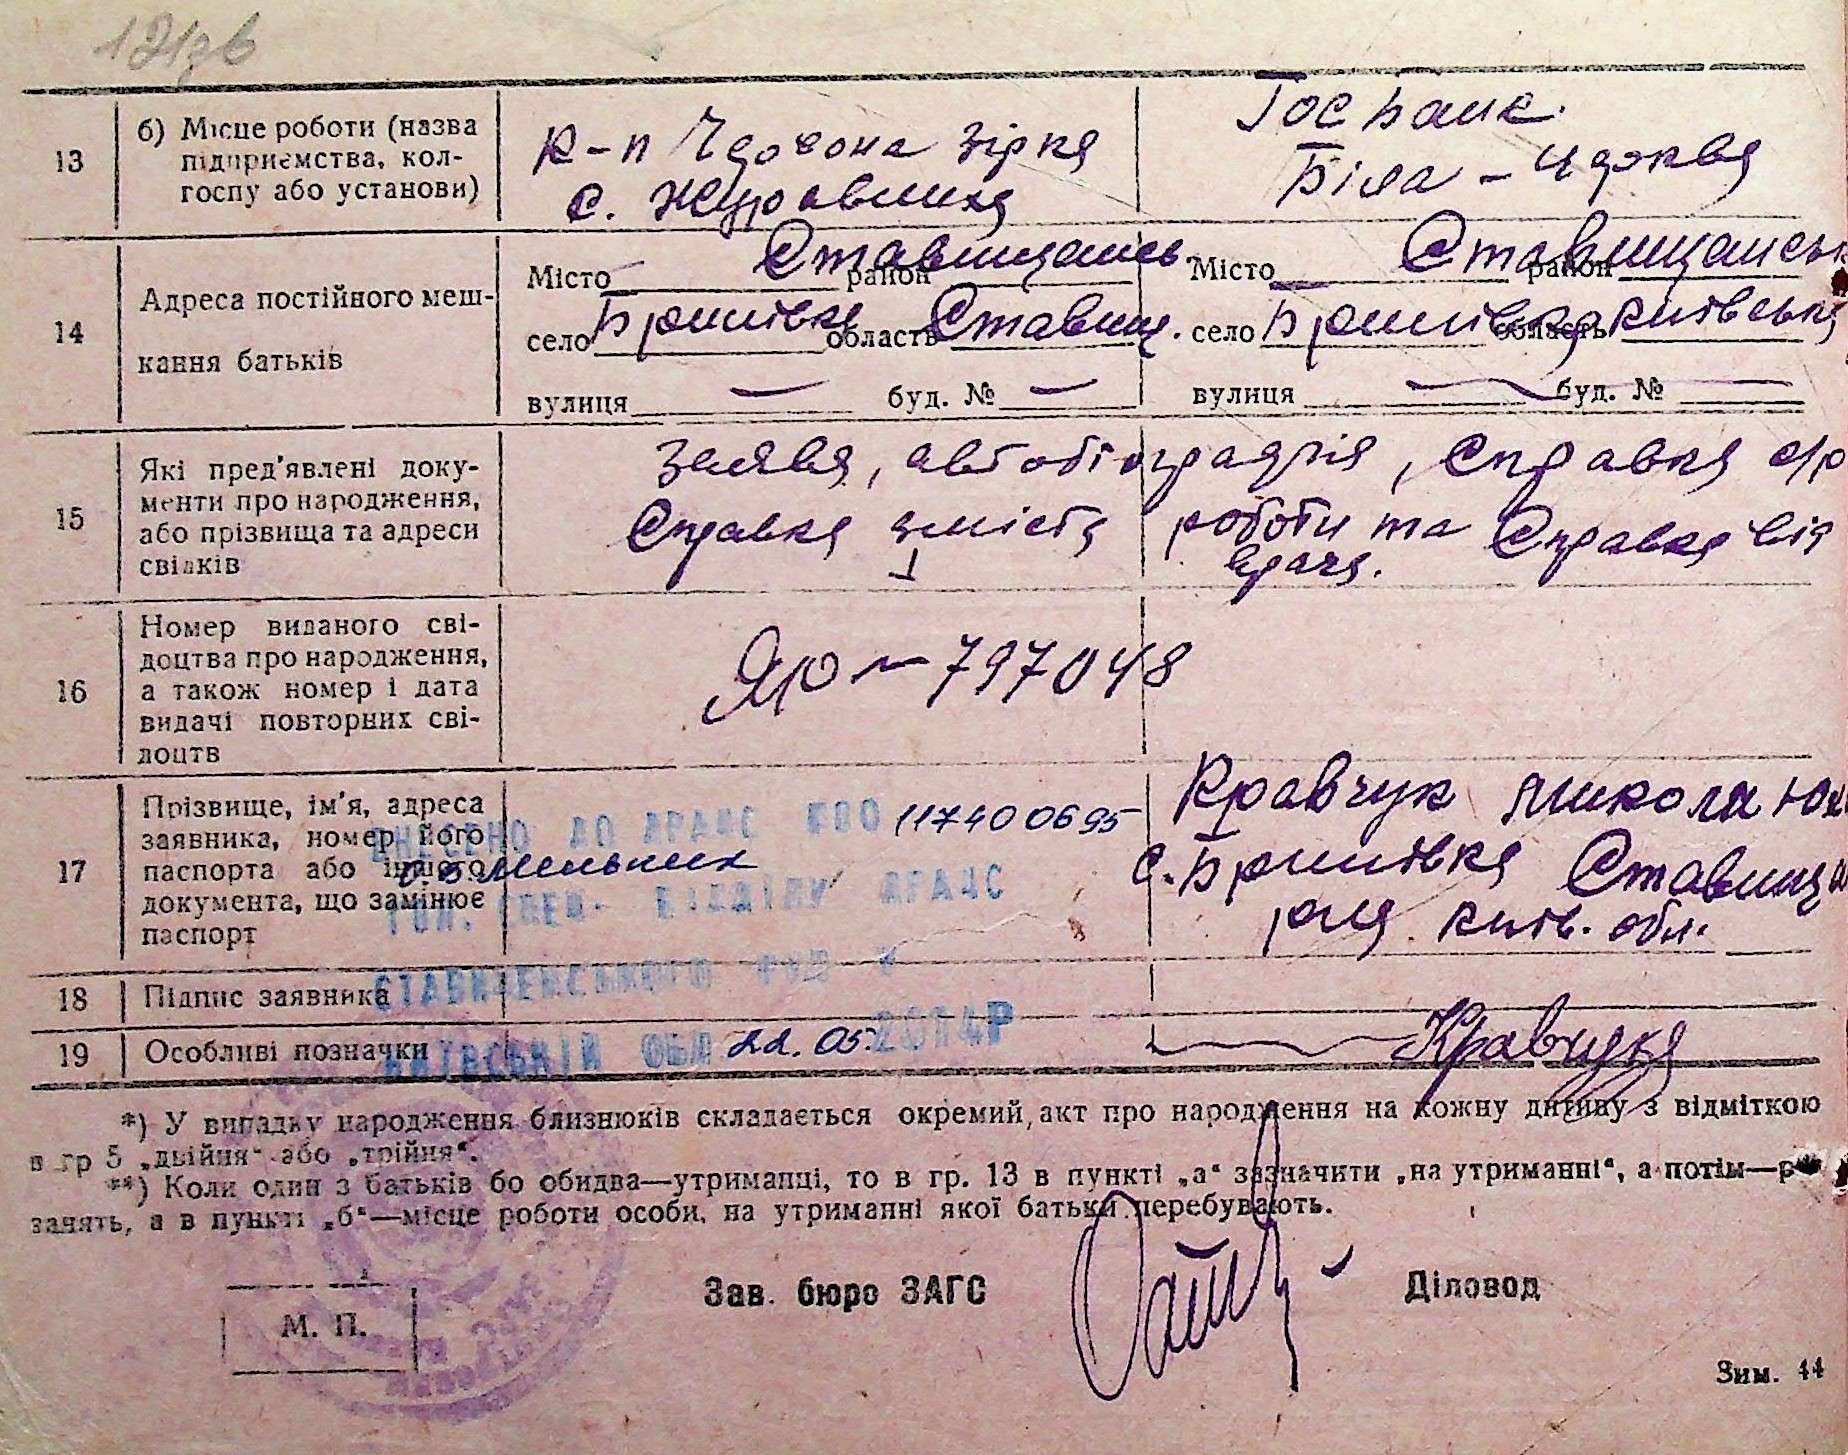 121зв
13
б) Місце роботи (назва
підприємства, кол-
госпу або установи)
к-п Червона Зірка
с. Журавлиха
Госбанк.
Біла - Церква
14
Адреса постійного меш-
кання батьків
Місто район Ставищанськ.
село Бришівка область Ставищ.
вулиця — буд. № —
Місто район Ставищанськ
село Бришівка область Київська
вулиця — буд. №
15
Які пред'явлені доку-
менти про народження,
або прізвища та адреси
свідків
Заява, автобіографія, Справка с/р
Справка змість роботи та Справка від
врача.
16
Номер виданого сві-
доцтва про народження,
а також номер і дата
видачі повторних сві-
доцтв
ЯЮ — 797048
17
Прізвище, ім'я, адреса
заявника, номер його
паспорта або іншого
документа, що замінює
паспорт
ВНЕСЕНО ДО ДРАЦС 00 117400695
Мельник
ГОЛ. СПЕЦ. ВІДДІЛУ ДРАЦС
СТАВИЩЕНСЬКОГО РУЮ У
КИЇВСЬКІЙ ОБЛ 22.05. 2014Р
Кравчук Микола
с. Бришівка Ставищ
р-на Київ. обл.
18
Підпис заявника
19
Особливі позначки
Кравчука
*) У випадку народження близнюків складається окремий акт про народження на кожну дитину з відміткою
в гр 5 „двійня" або „трійня".
**) Коли один з батьків бо обидва—утриманці, то в гр. 13 в пункті „а" зазначити „на утриманні", а потім—р
занять, а в пункті „б"—місце роботи особи, на утриманні якої батьки перебувають.
М. П.
Зав. бюро ЗАГС
Діловод
Зим. 44